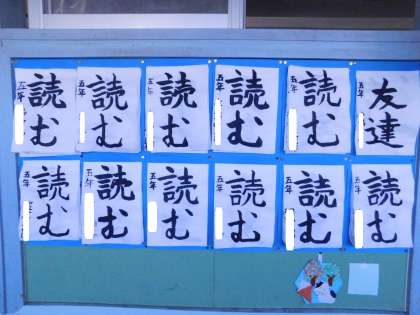 読む
五年
読む
五年
読む
五年
読む
五年
読む
五年
友達
五年
読む
五年
読む
五年
読む
五年
読む
五年
読む
五年
読む
五年